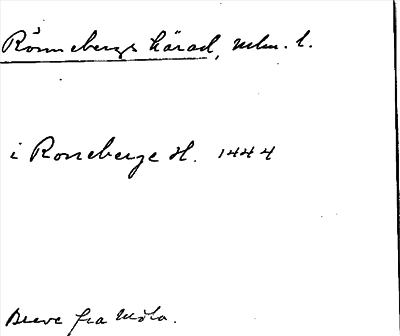 Rönnebergs härad, mlm. l.
i Ronneberge H. 1444
Breve fra Malm.